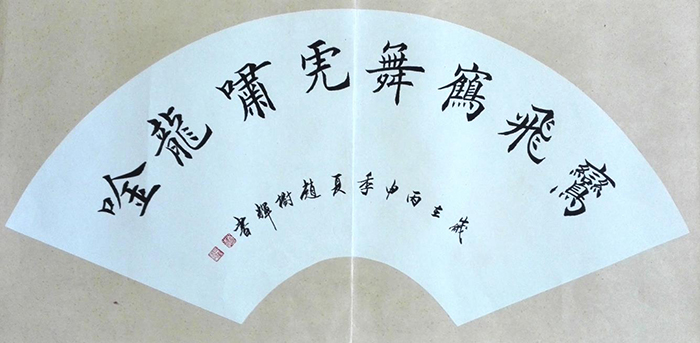 鸞飛鶴舞虎嘯龍唫
歲在丙申季夏趙樹輝書